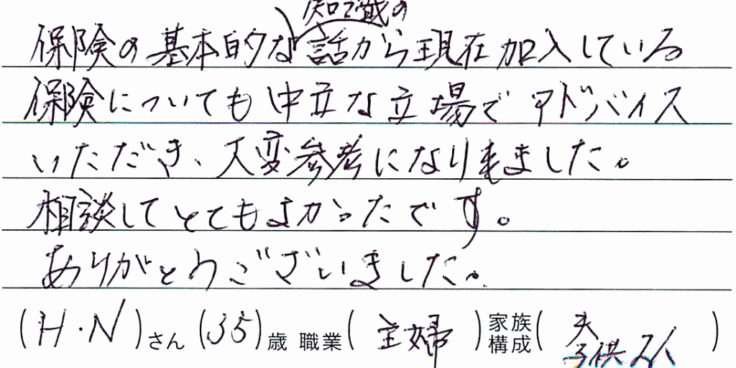 知識の
保険の基本的な話から現在加入している
保険についても中立な立場でアドバイス
いただき、大変参考になり来ました。
相談してとてもよかったです。
ありがとうございました。
(H・N)さん (35)歳 職業(主婦)家族構成(夫 子供2人)